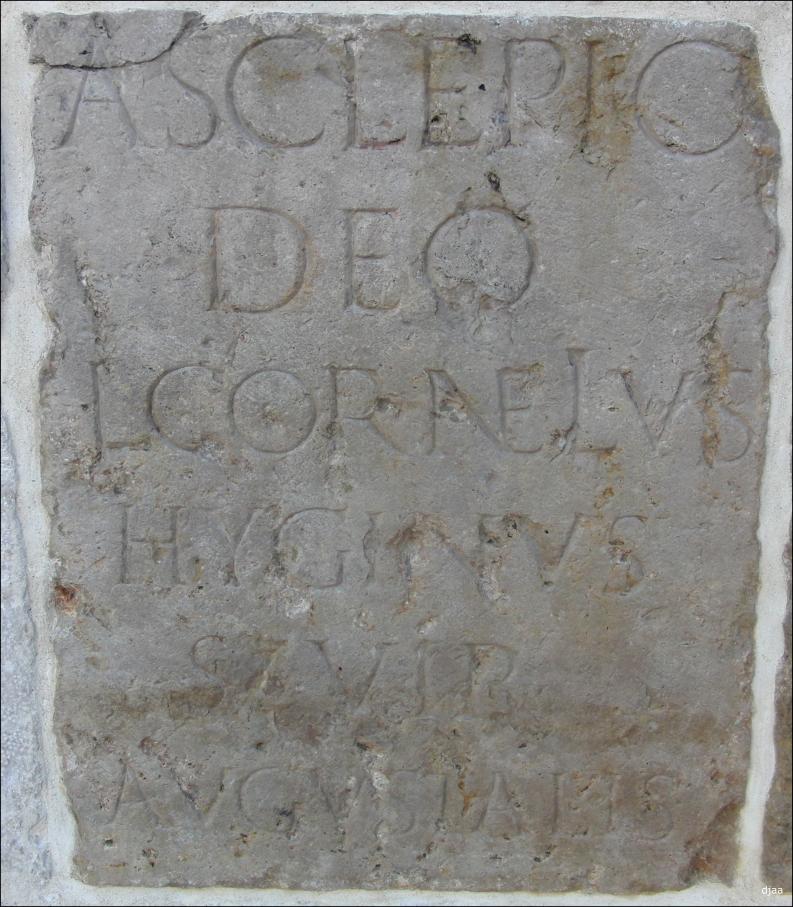 ASCLEPIO
DEO
L CORNELIVS
HYGINVS
SEVIR
AVGVSTALIS
djaa